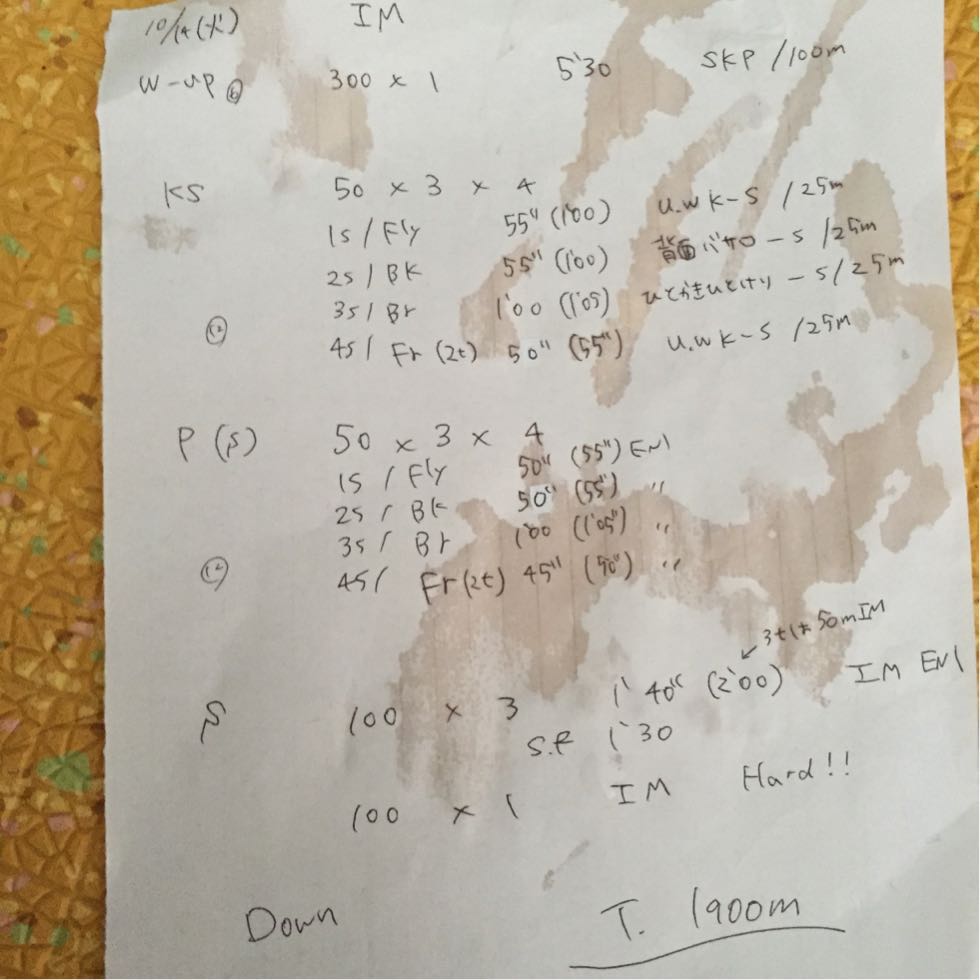 10/14(火) IM
W-up ⑥ 300 × 1 5'30 SKP /100m
KS 50 × 3 × 4
1s / Fly 55" (1'00) U.W K-S /25m
2s / Bk 55" (1'00) 背面バサロ-S /25m
3s / Br 1'00 (1'05) ひとかきひとけり-S /25m
⑫ 4s / Fr (2t) 50" (55") U.W K-S /25m
P (S) 50 × 3 × 4
1s / Fly 50" (55") EN1
2s / Bk 50" (55") 〃
3s / Br 1'00 (1'05") 〃
⑫ 4s / Fr (2t) 45" (50") 〃
3tは50mIM
S 100 × 3 1'40" (2'00) IM EN1
S.R 1'30
100 × 1 IM Hard!!
Down T. 1900m